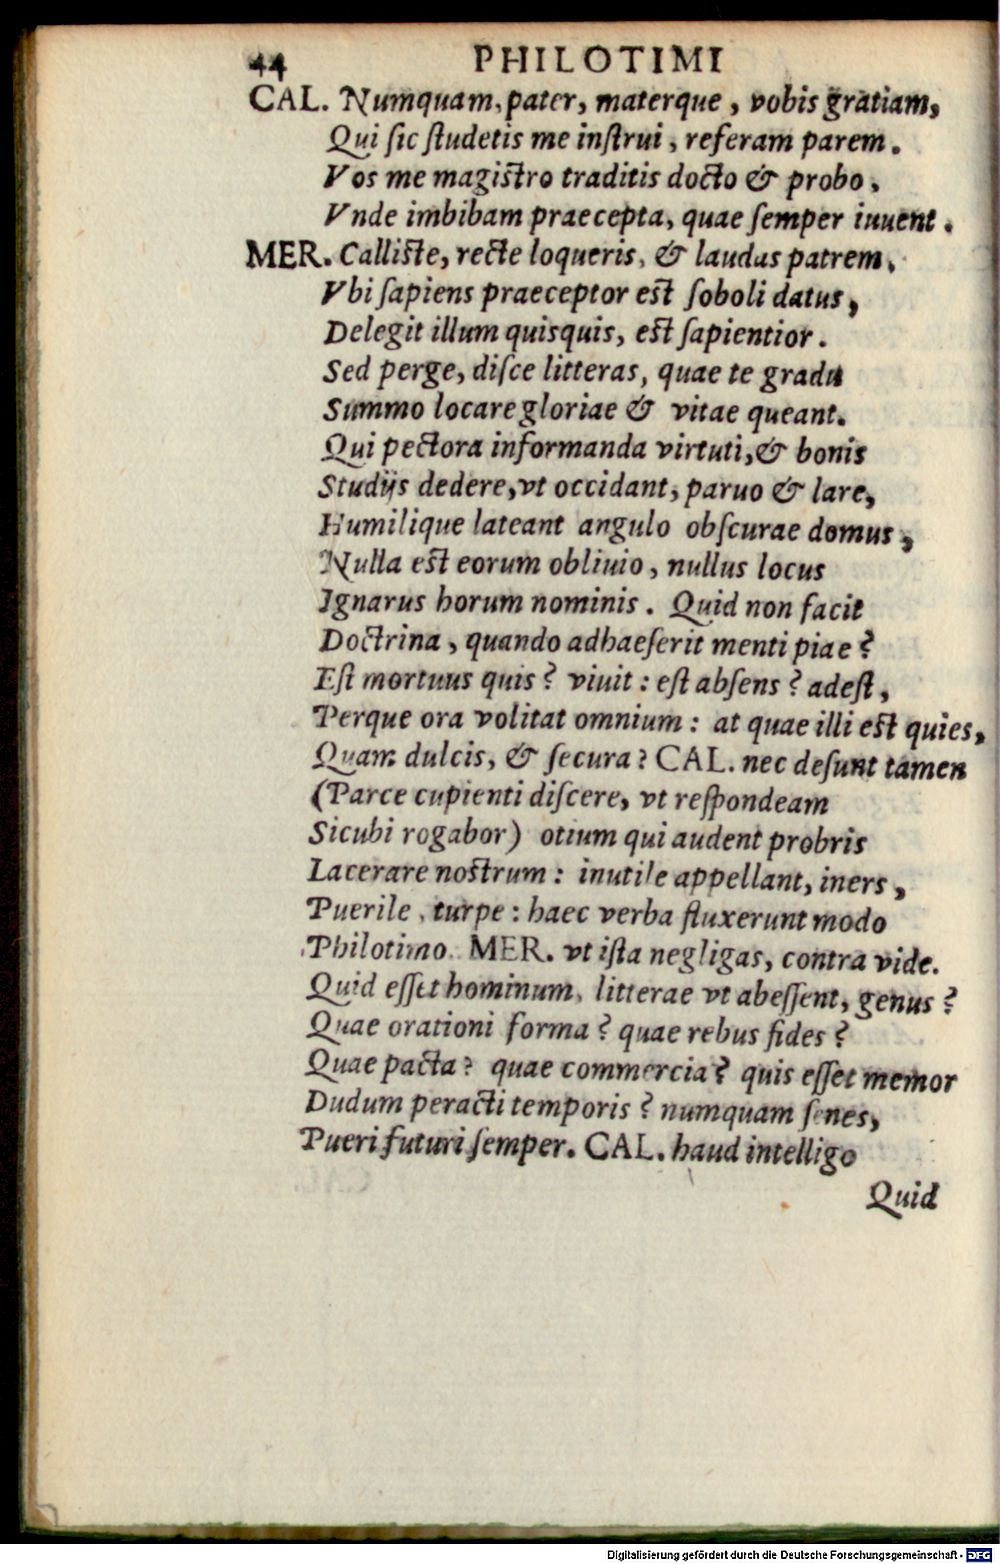 44 PHILOTIMI
CAL. Numquam, pater, materque, vobis gratiam,
Qui sic studetis me instrui, referam parem.
Vos me magistro traditis docto & probo,
Vnde imbibam praecepta, quae semper iuuent.
MER. Calliste, recte loqueris, & laudas patrem,
Vbi sapiens praeceptor est soboli datus,
Delegit illum quisquis, est sapientior.
Sed perge, disce litteras, quae te gradu
Summo locare gloriae & vitae queant.
Qui pectora informanda virtuti, & bonis
Studijs dedere, vt occidant, paruo & lare,
Humilique lateant angulo obscurae domus,
Nulla est eorum obliuio, nullus locus
Ignarus horum nominis. Quid non facit
Doctrina, quando adhaeserit menti piae?
Est mortuus quis? viuit: est absens? adest,
Perque ora volitat omnium: at quae illi est quies,
Quam dulcis, & secura? CAL. nec desunt tamen
(Parce cupienti discere, vt respondeam
Sicubi rogabor) otium qui audent probris
Lacerare nostrum: inutile appellant, iners,
Puerile, turpe: haec verba fluxerunt modo
Philotimo. MER. vt ista negligas, contra vide.
Quid esset hominum, litterae vt abessent, genus?
Quae orationi forma? quae rebus fides?
Quae pacta? quae commercia? quis esset memor
Dudum peracti temporis? numquam senes,
Pueri futuri semper. CAL. haud intelligo
Quid
Digitalisierung gefördert durch die Deutsche Forschungsgemeinschaft - DFG